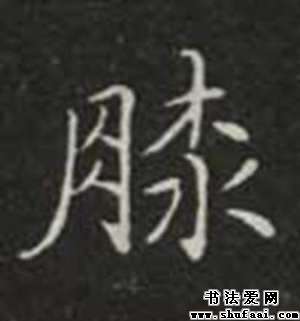 膝
书法爱网
www.shufaai.com